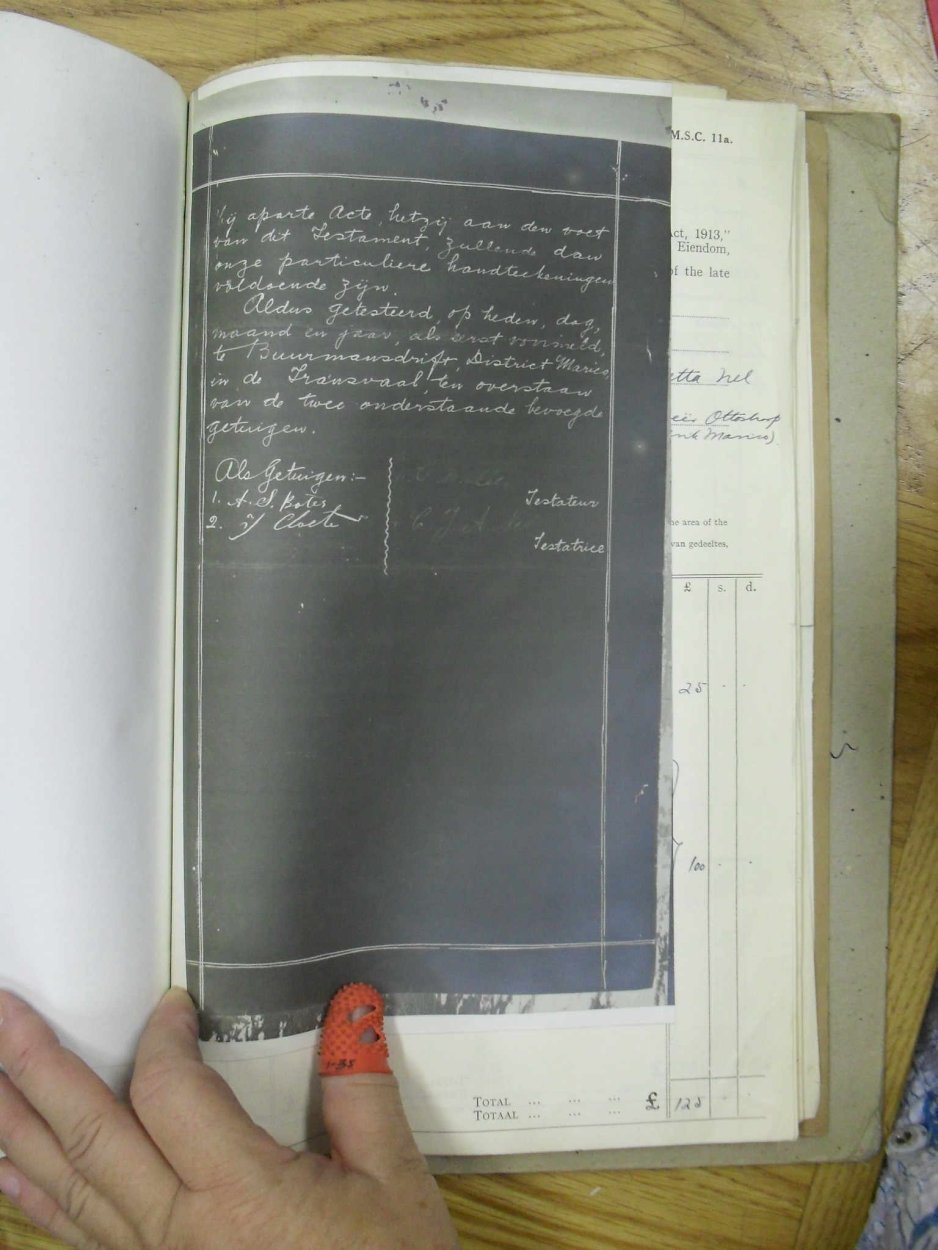 bij aparte Acte, hetzij aan den voet
van dit Testament, zullende dan
onze particuliere handteekeningen
voldoende zijn.
Aldus getesteerd, op heden, dag,
maand en jaar, als eerst voormeld,
te Buurmansdrift, District Marico,
in de Transvaal, ten overstaan
van de twee onderstaande bevoegde
getuigen.
Als Getuigen:-
1. A. S. Botes
2. Cloete
Testateur
Testatrice
M.S.C. 11a.
Act, 1913,"
Eiendom,
of the late
etta Nel
Ottoshoop
Marico)
the area of the
van gedeeltes,
£ s. d.
25 - -
100 - -
TOTAL ... ... ...
TOTAAL ... ... ... £ 125
1-35